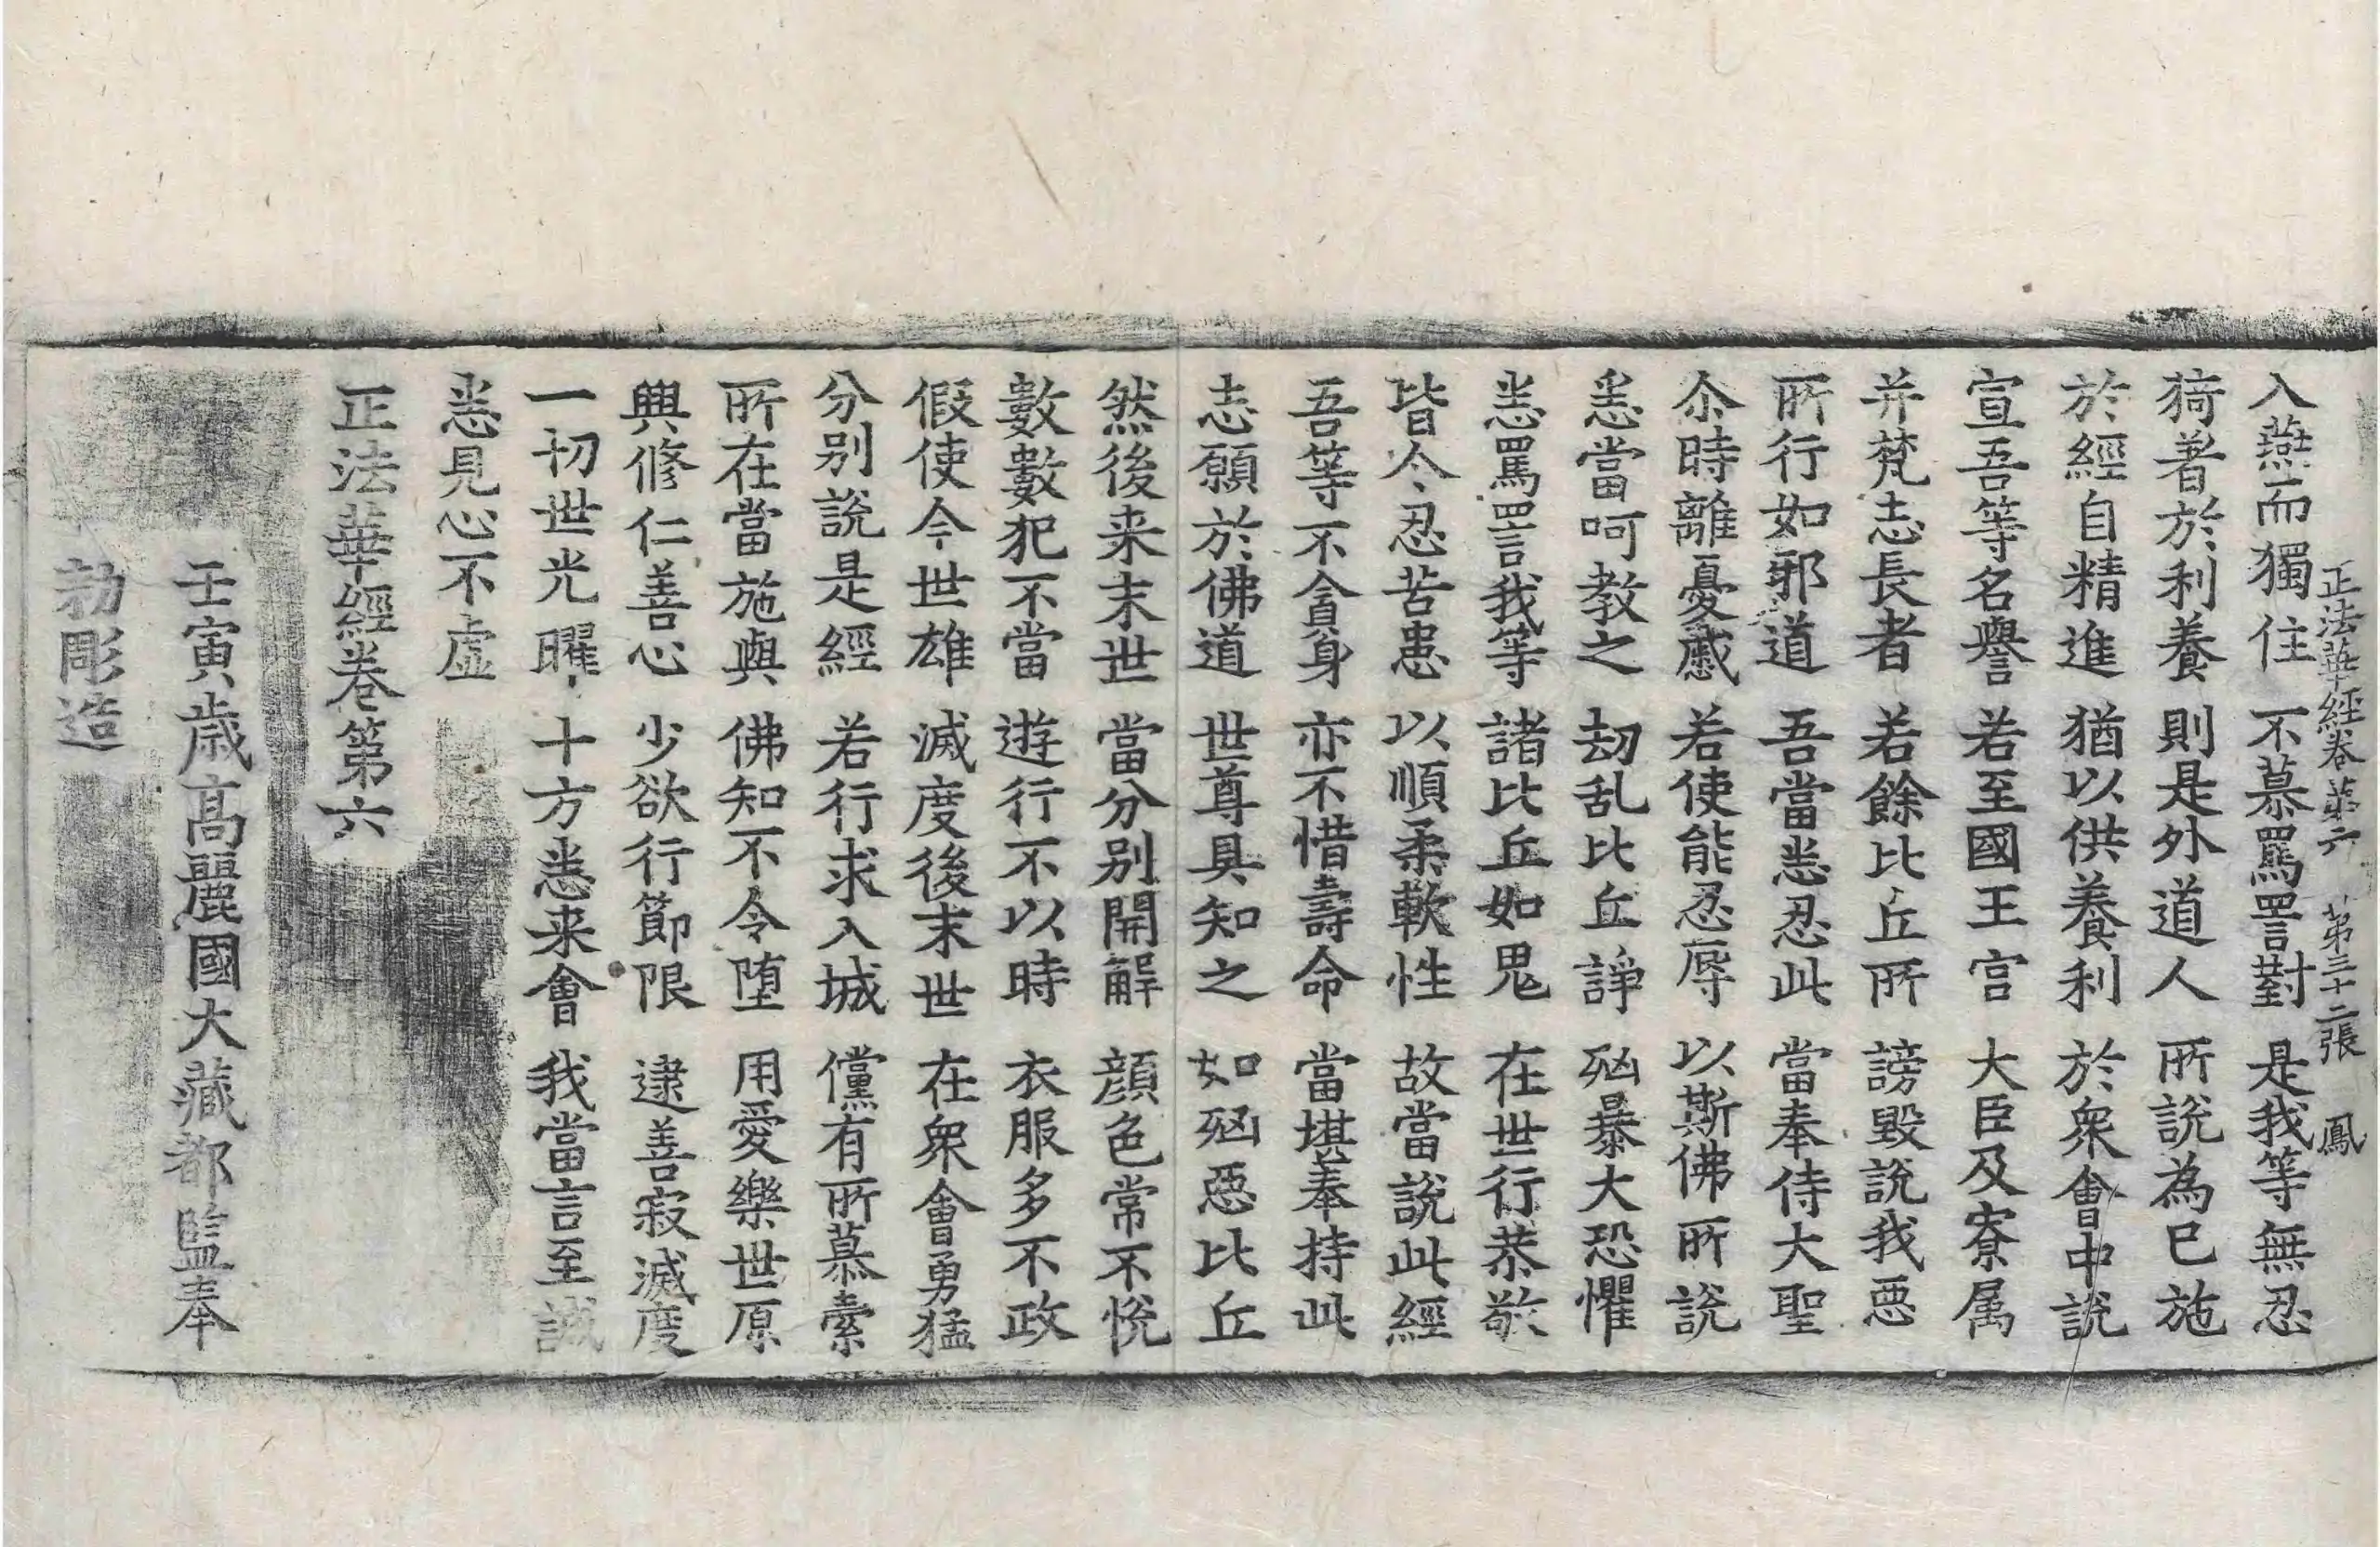 正法華經卷第六 第三十二張 鳳
入燕而獨住 不慕罵詈對 是我等無忍
猗著於利養 則是外道人 所說為已施
於經自精進 猶以供養利 於衆會中說
宣吾等名譽 若至國王宮 大臣及寮属
并梵志長者 若餘比丘所 謗毀說我惡
所行如邪道 吾當悉忍此 當奉侍大聖
尒時離憂慼 若使能忍辱 以斯佛所說
悉當呵教之 劫乱比丘諍 兇暴大恐懼
悉罵詈我等 諸比丘如鬼 在世行恭敬
皆令忍苦患 以順柔軟性 故當說此經
吾等不貪身 亦不惜壽命 當堪奉持此
志願於佛道 世尊具知之 如兇惡比丘
然後来末世 當分別開解 顔色常不恱
數數犯不當 遊行不以時 衣服多不政
假使今世雄 滅度後末世 在衆會勇猛
分別說是經 若行求入城 儻有所慕索
所在當施與 佛知不令堕 用愛樂世原
興修仁善心 少欲行節限 逮善寂滅度
一切世光曜 十方悉来會 我當言至誠
悉見心不虛
正法華經卷第六
壬寅歳高麗國大藏都監奉
勑彫造